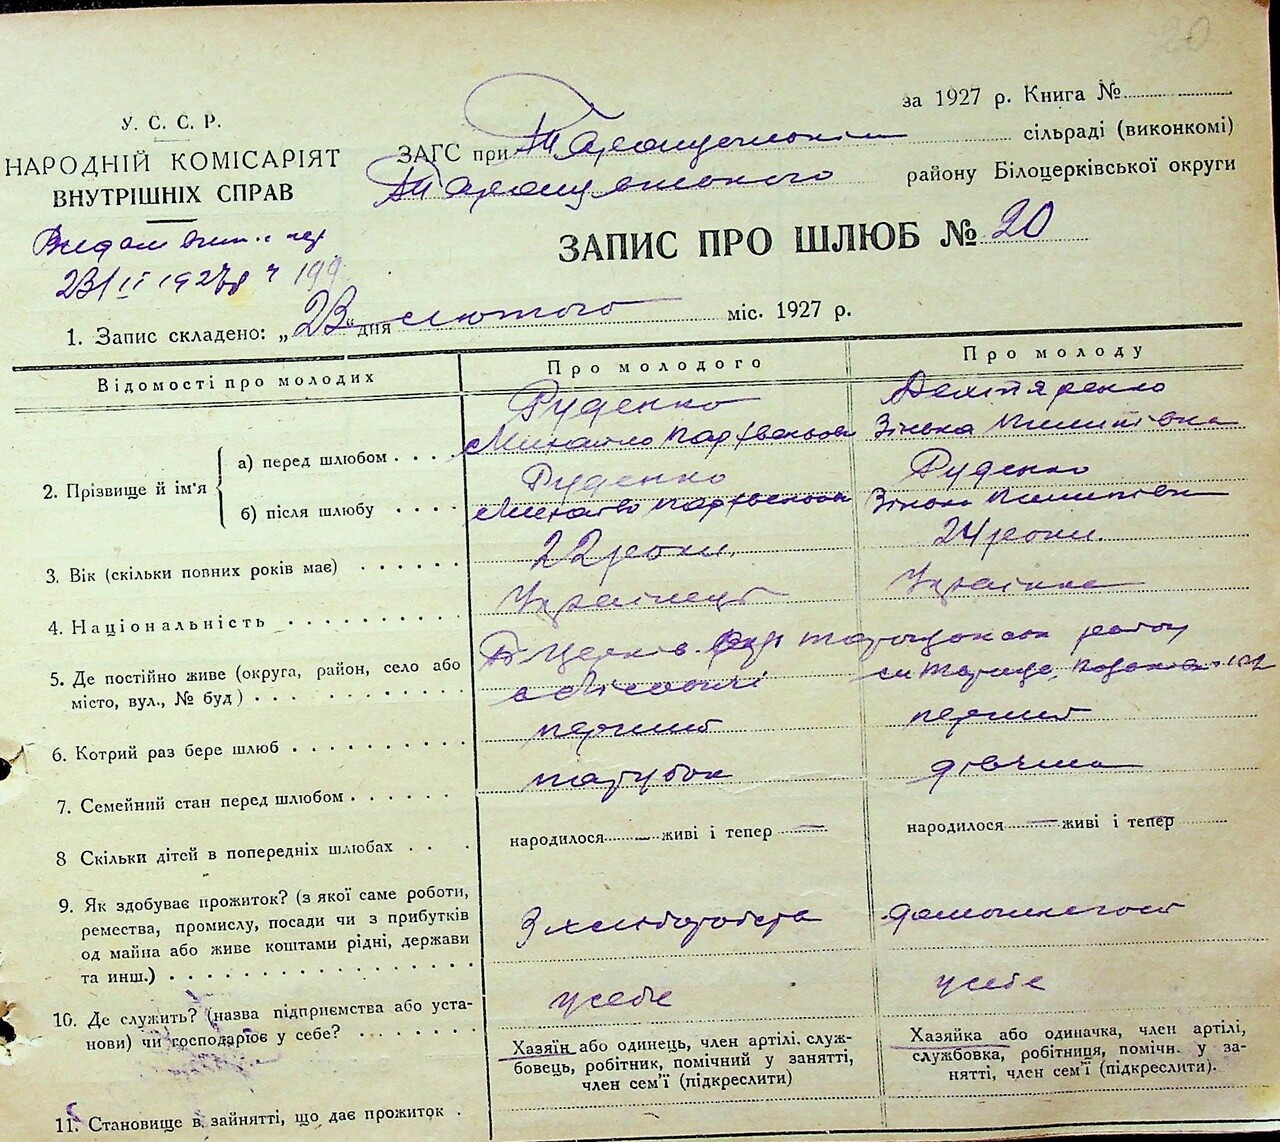 20
У. С. С. Р.
НАРОДНІЙ КОМІСАРІЯТ
ВНУТРІШНІХ СПРАВ
за 1927 р. Книга №
ЗАГС при Таращанськім сільраді (виконкомі)
Таращанського району Білоцерківської округи
23/II 1927 р ч 199
ЗАПИС ПРО ШЛЮБ № 20
1. Запис складено: „23“ дня лютого міс. 1927 р.
Відомості про молодих
Про молодого
Про молоду
2. Прізвище й ім'я
а) перед шлюбом
Руденко
Михайло Пархвеньов
Дехтяренко
Зінька Пилипівна
б) після шлюбу
Руденко
Михайло Пархвеньов
Руденко
Зінька Пилипівн
3. Вік (скільки повних років має)
22 роки
24 роки
4. Національність
Українець
Українка
5. Де постійно живе (округа, район, село або
місто, вул., № буд)
Б Церків. окр району
с Лісовичі
м Тараща,
6. Котрий раз бере шлюб
перший
перший
7. Семейний стан перед шлюбом
парубок
дівчина
8 Скільки дітей в попередніх шлюбах
народилося — живі і тепер —
народилося — живі і тепер
9. Як здобуває прожиток? (з якої саме роботи,
ремества, промислу, посади чи з прибутків
од майна або живе коштами рідні, держави
та инш.)
З хліборобства
10. Де служить? (назва підприємства або уста-
нови) чи господарює у себе?
у себе
у себе
11. Становище в зайнятті, що дає прожиток
Хазяїн або одинець, член артілі, служ-
бовець, робітник, помічний у занятті,
член сем'ї (підкреслити)
Хазяйка або одиначка, член артілі,
службовка, робітниця, помічн. у за-
нятті, член сем'ї (підкреслити).